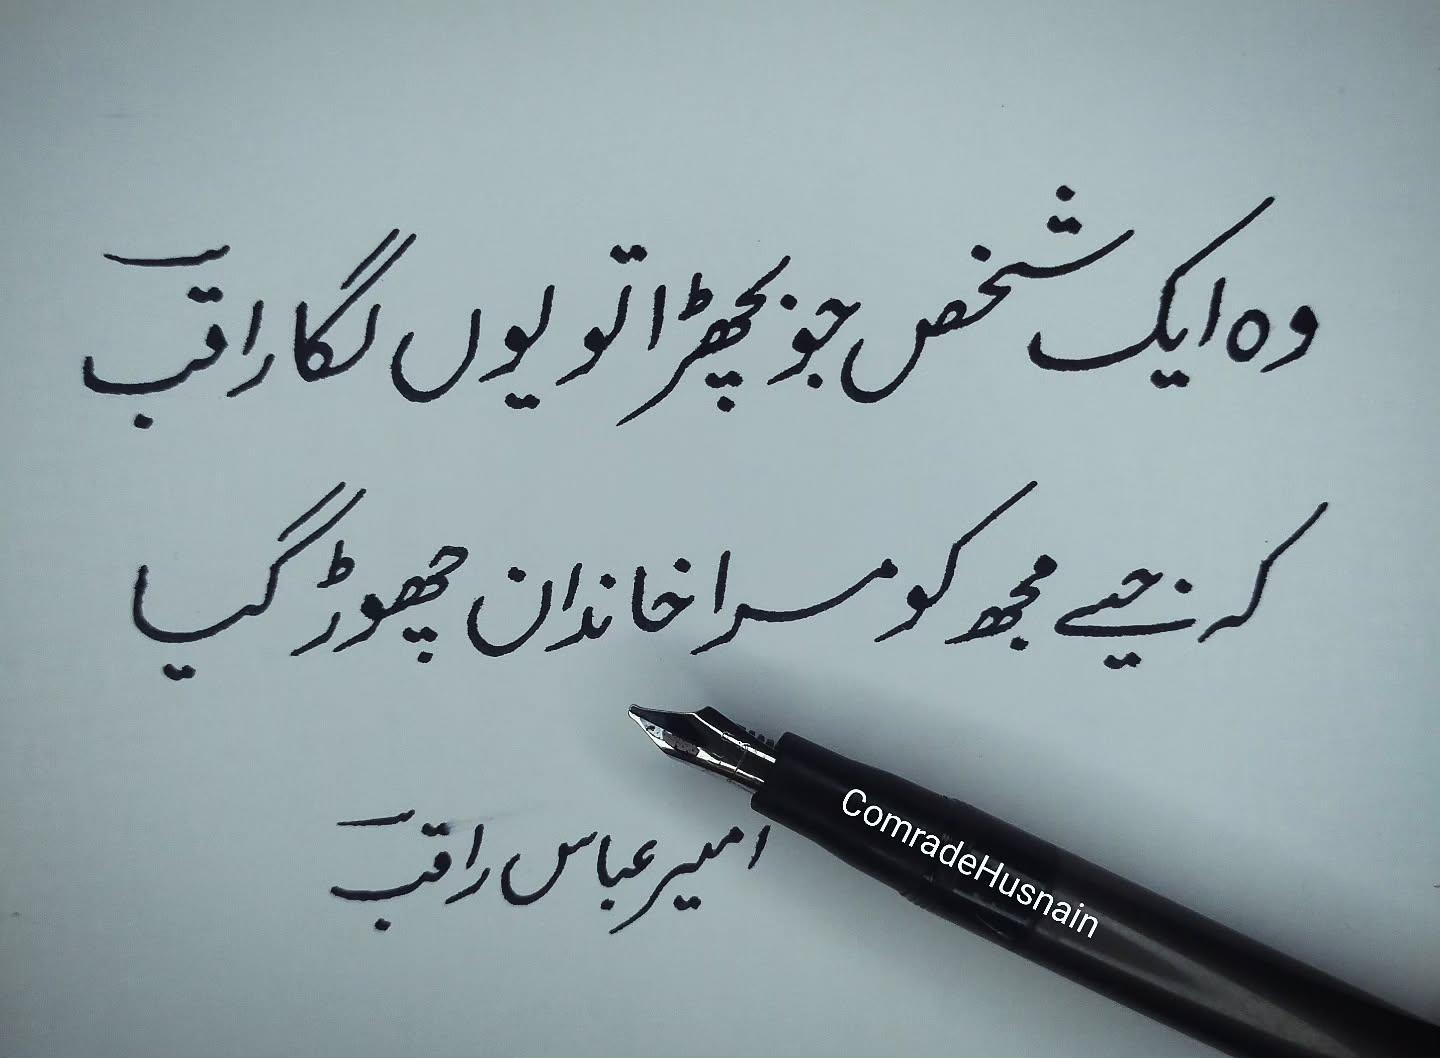 وہ ایک شخص جو بچھڑا تو یوں لگا راقبؔ
کہ جیسے مجھ کو مرا خاندان چھوڑ گیا
امیر عباس راقبؔ
ComradeHusnain